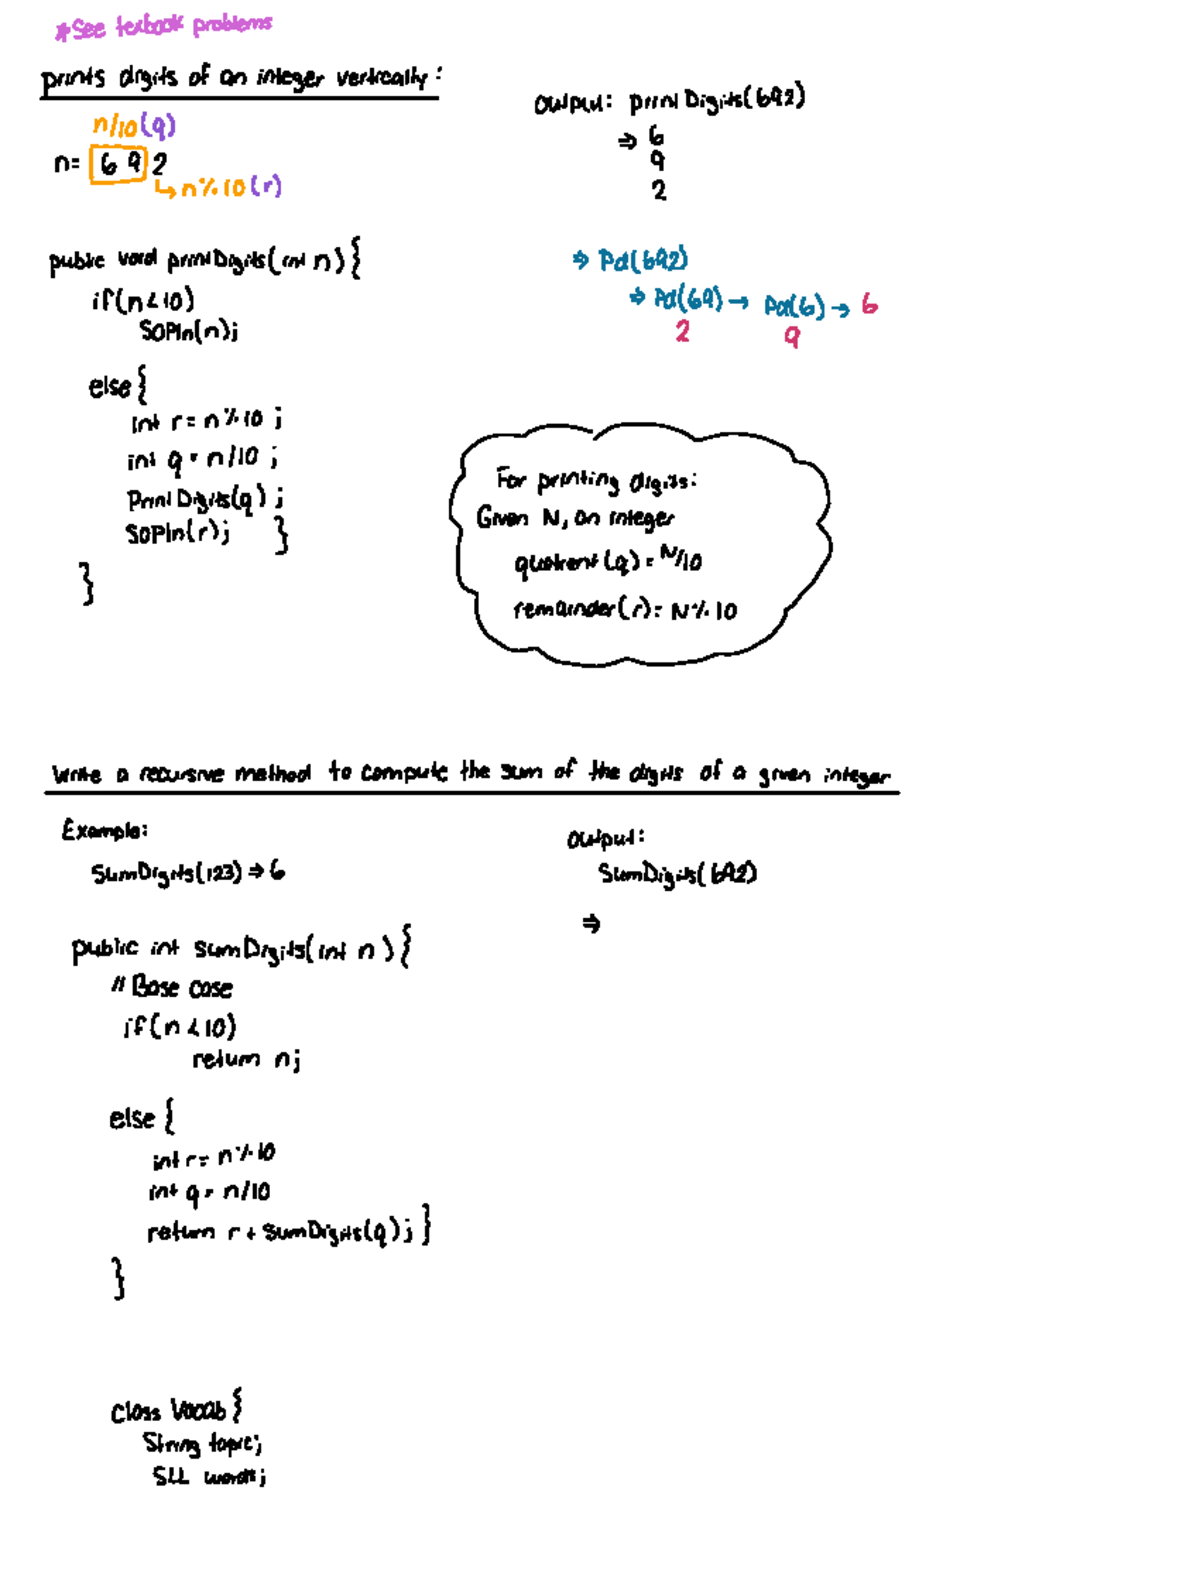 *See texbook problems
prints digits of an integer vertically:
n/10(q)
n= 6 9 2
↳ n%10(r)
public void printDigits(int n){
if(n<10)
SOPln(n);
else{
int r= n%10;
int q = n/10;
PrintDigits(q);
SOPln(r); }
}
Output: printDigits(692)
⇒ 6
9
2
⇒ Pd(692)
⇒ Pd(69) → Pd(6) → 6
2 9
For printing digits:
Given N, an integer
quotient (q) = N/10
remainder(r)= N%10
Write a recursive method to compute the sum of the digits of a given integer
Example:
SumDigits(123) ⇒ 6
public int sumDigits(int n){
// Base case
if(n<10)
return n;
else{
int r= n%10
int q = n/10
return r + sumDigits(q);}
}
Output:
SumDigits(692)
⇒
Class Vocab{
String topic;
SLL words;